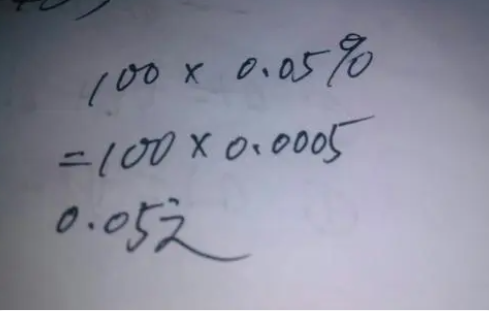 100 × 0.05%
=100×0.0005
0.05